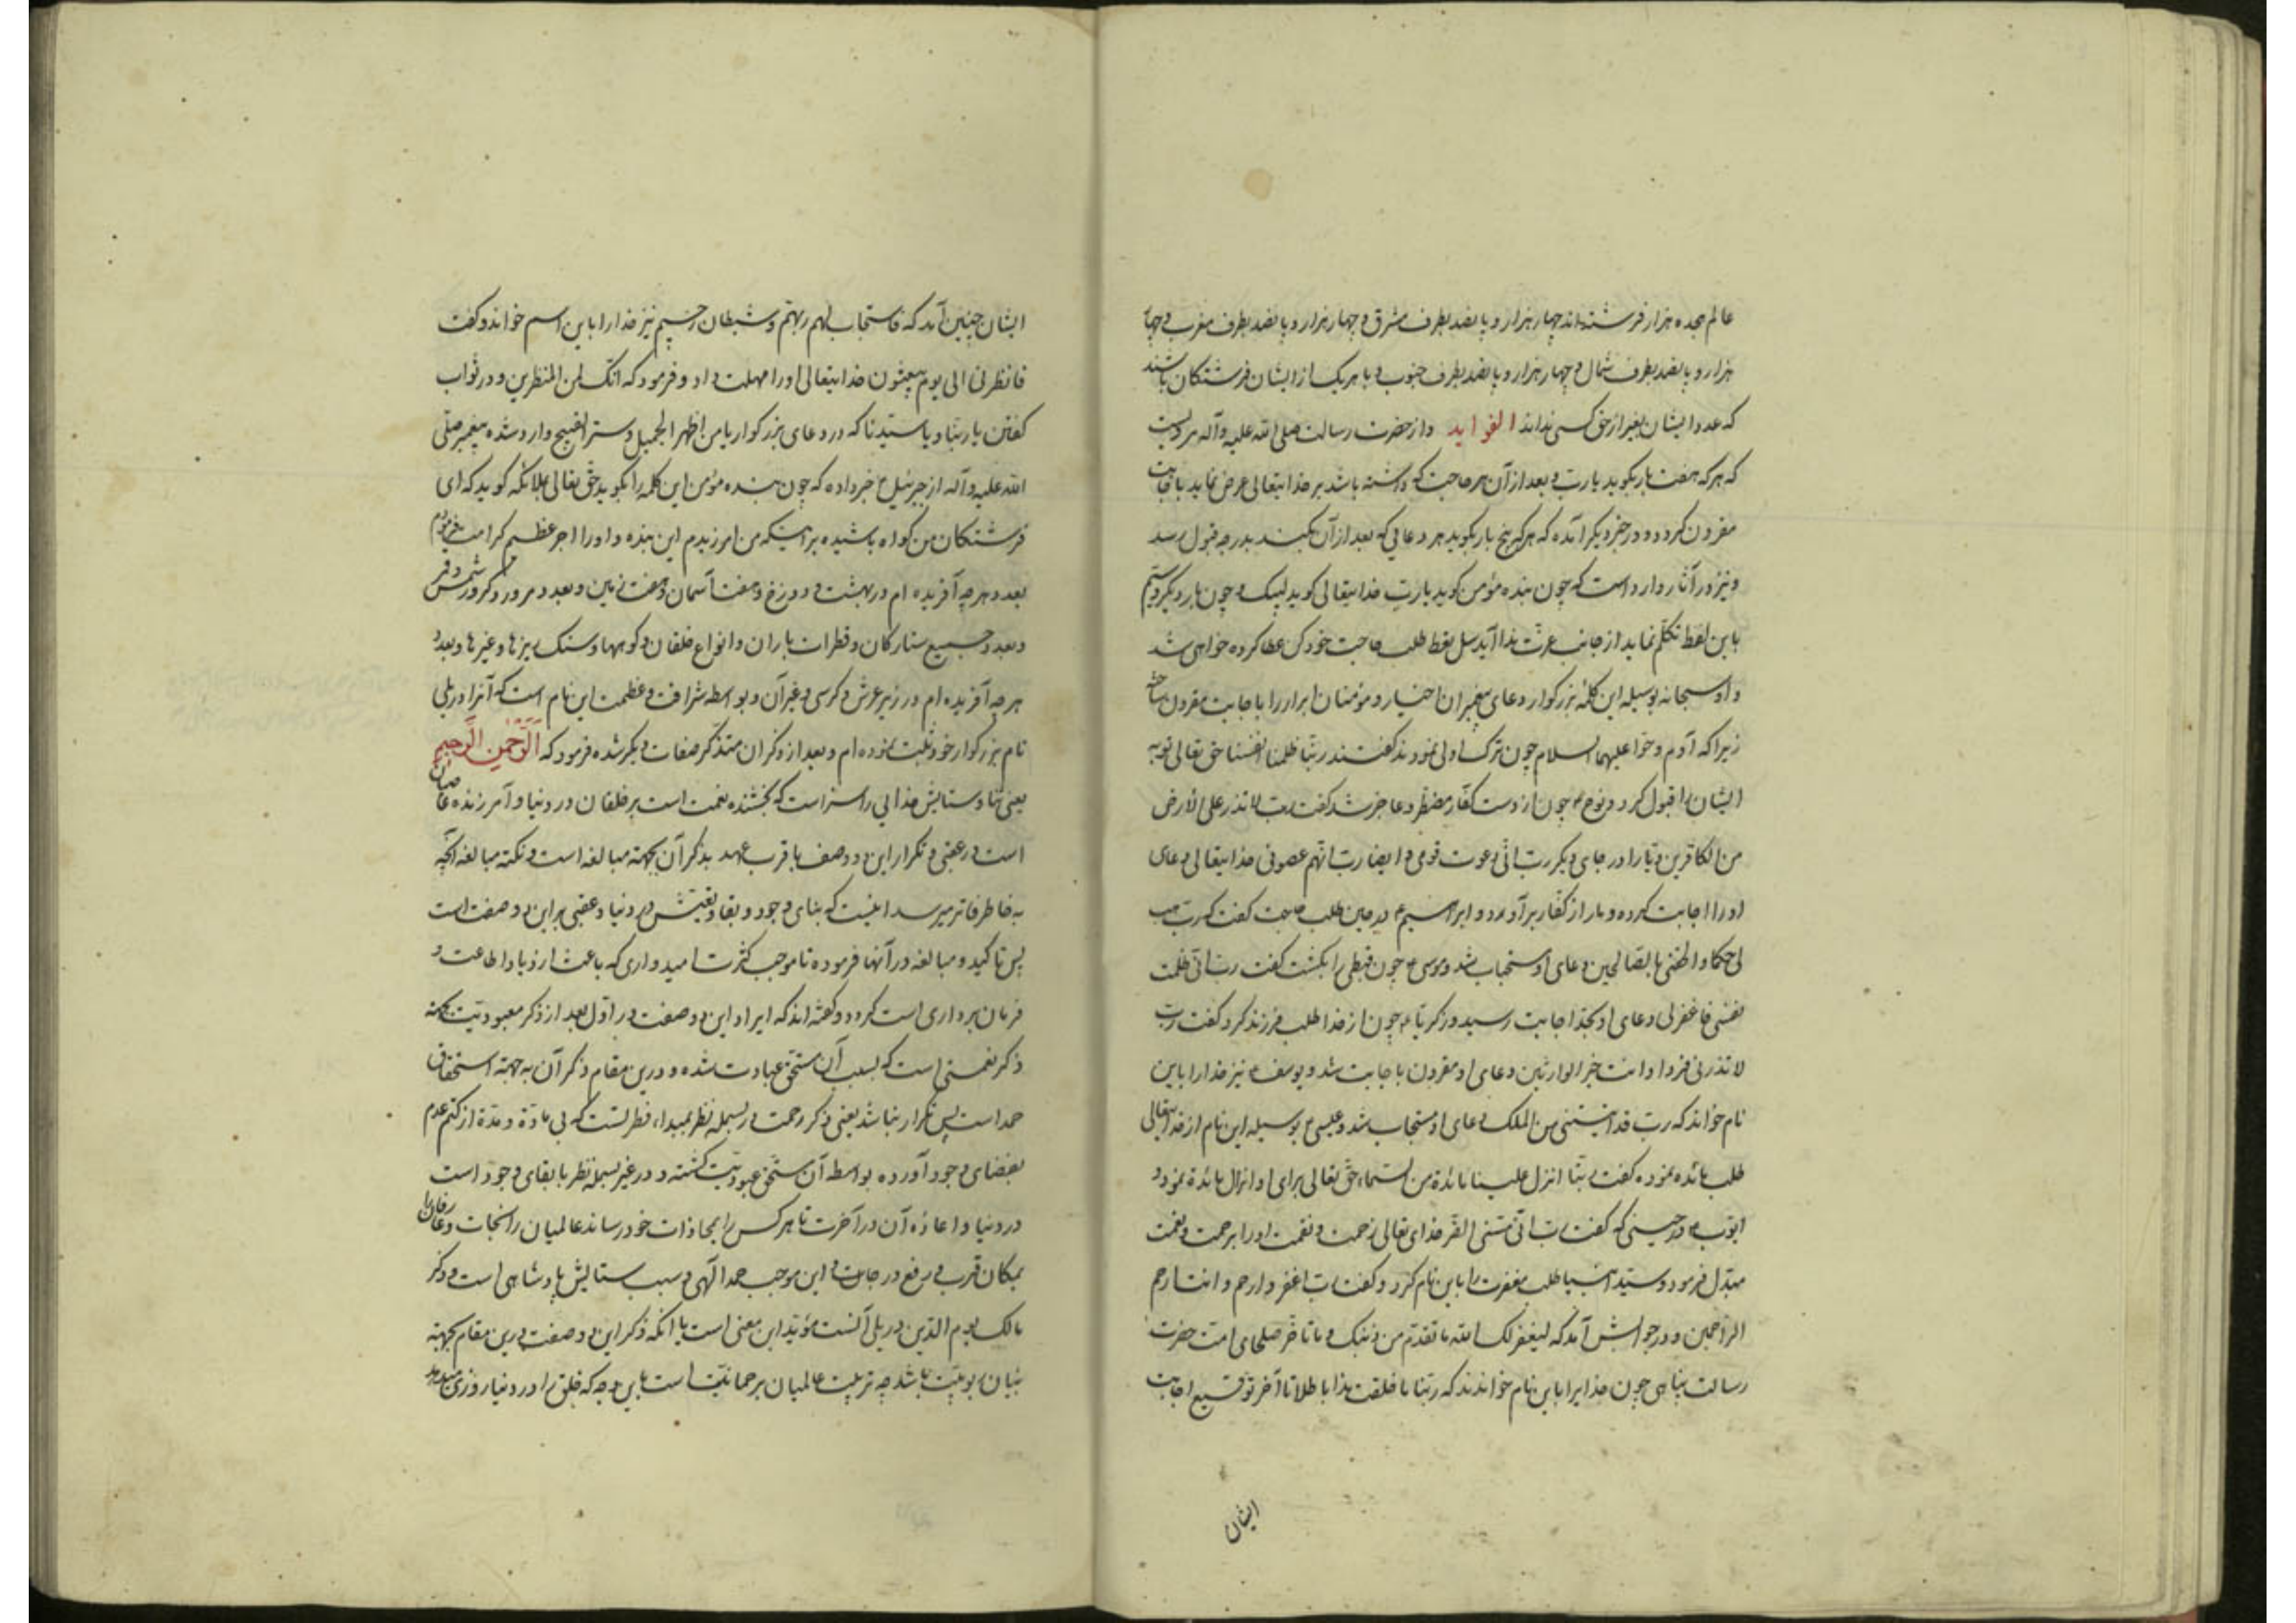 عالم هجده هزار فرشته‌اند چهار هزار و پانصد بطرف مشرق و چهار هزار و پانصد بطرف مغرب و چهار
هزار و پانصد بطرف شمال و چهار هزار و پانصد بطرف جنوب و با هر یک از ایشان فرشتگان باشند
که عدد ایشان بغیر از حق کسی نداند الفواید و از حضرت رسالت صلی الله علیه و آله مرویست
که هر که هفت بار بگوید یا رب و بعد از آن هر حاجت که داشته باشد بر خدایتعالی عرض نماید باجابت
مقرون گردد و در خبر دیگر آمده که هر که پنج بار بگوید هر دعایی که بعد از آن بکند بدرجه قبول رسد
و نیز در آثار وارد است که چون بنده مؤمن گوید یا رب خدایتعالی گوید لبیک و چون بار دیگر و سیم
باین لفظ تکلم نماید از جانب عزت ندا آید سل تعط طلب حاجت خود کن عطا کرده خواهی شد
و او سبحانه بوسیله این کلمه بزرگوار دعای پیغمبران اخیار و مؤمنان ابرار را باجابت مقرون ساخته
زیرا که آدم و حوا علیهما السلام چون ترک اولی نمودند گفتند ربنا ظلمنا انفسنا حق تعالی توبه
ایشان را قبول کرد و نوح ع چون از دست کفار مضطر و عاجز شد گفت رب لا تذر علی الارض
من الکافرین دیارا و در جای دیگر رب انی دعوت قومی و ایضا رب انهم عصونی خدایتعالی دعای
او را اجابت کرده دمار از کفار برآورد و ابراهیم ع در حین طلب حاجت گفت که رب هب
لی حکما و الحقنی بالصالحین دعای او مستجاب شد و موسی ع چون قبطی را بکشت گفت رب انی ظلمت
نفسی فاغفر لی دعای او بحد اجابت رسید و زکریا ع چون از خدا طلب فرزند کرد گفت رب
لا تذرنی فردا و انت خیر الوارثین دعای او مقرون باجابت شد و یوسف ع نیز خدا را باین
نام خواند که رب قد آتیتنی من الملک دعای او مستجاب شد و عیسی ع بوسیله این نام از خدایتعالی
طلب مائده نموده گفت ربنا انزل علینا مائدة من السماء حق تعالی برای او انزال مائدة نمود و
ایوب ع در حینی که گفت رب انی مسنی الضر خدای تعالی زحمت و نقمت او را برحمت و نعمت
مبدل فرمود و سید انبیا طلب مغفرت را باین نام کرد و گفت رب اغفر و ارحم و انت ارحم
الراحمین و در جوابش آمد که لیغفر لک الله ما تقدم من ذنبک و ما تأخر صلحای امت حضرت
رسالت پناهی چون خدایرا باین نام خواندند که ربنا ما خلقت هذا باطلا تا آخر توقیع اجابت
ایشان
ایشان چنین آمد که فاستجاب لهم ربهم و شیطان رجیم نیز خدا را باین اسم خواند و گفت
فانظرنی الی یوم یبعثون خدایتعالی او را مهلت داد و فرمود که انک لمن المنظرین و در ثواب
گفتن یا ربنا و یا سیدنا که در دعای بزرگوار یا من اظهر الجمیل و ستر القبیح وارد شده پیغمبر صلی
الله علیه و آله از جبرئیل ع خبر داده که چون بنده مؤمن این کلمه را بگوید حق تعالی ملائکه گوید که ای
فرشتگان من گواه باشید براینکه من آمرزیدم این بنده و او را اجر عظیم کرامت فرمودم
بعدد هر چه آفریده ام در بهشت و دوزخ و هفت آسمان و هفت زمین و بعدد مرور و کرور شمس و قمر
و بعدد جمیع ستارگان و قطرات باران و انواع خلقان و کوهها و سنگ ریزها و غیرها و بعدد
هر چه آفریده ام در زیر عرش و کرسی و غیر آن و بواسطه شرافت و عظمت این نام است که آنرا در پلی
نام بزرگوار خود ثبت نموده ام و بعد از ذکر آن متذکر صفات دیگر شده فرمود که الرحمن الرحیم
یعنی ثنا و ستایش خدایی را سزاست که بخشنده نعمت است بر خلقان در دنیا و آمرزنده عاصیان
است در عقبی و تکرار این دو وصف با قرب عهد بذکر آن بجهته مبالغه است و نکته مبالغه آنچه
به خاطر فاتر میرسد اینست که بنای وجود و بقا و تعیش در دنیا و عقبی بر این دو صفت است
پس تاکید و مبالغه در آنها فرموده تا موجب کثرت امیدواری که باعث ازدیاد اطاعت و
فرمان برداری است گردد و گفته‌اند که ایراد این دو صفت در اول بعد از ذکر معبودیت بجهته
ذکر نعمتی است که بسبب آن مستحق عبادت شده و درین مقام ذکر آن به جهته استحقاق
حمد است پس تکرار نباشد یعنی ذکر رحمت در بسمله نظر بمبداء فطرتست که بی مادة و مدة از کتم عدم
بفضای وجود آورده بواسطه آن مستحق عبودیت گشته و در غیر بسمله نظر بابقای وجود است
در دنیا و اعاده آن در آخرت تا هر کس را بمجازات خود رساند عالمیان را نجات و عارفان را
بمکان قرب و رفع درجات و این موجب حمد الهی و سبب ستایش پادشاهی است و ذکر
مالک یوم الدین در پلی آنست مؤید این معنی است یا آنکه ذکر این دو صفت درین مقام بجهته
بنیان ربوبیت باشد چه تربیت عالمیان برحمانیت است باین وجه که خلق را در دنیا روزی میدهد